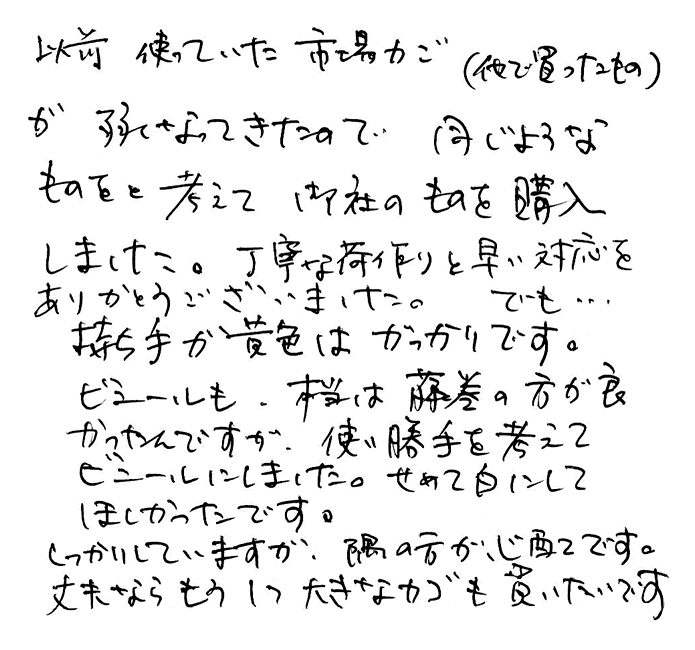 以前 使っていた 市場カご (他で買ったもの)
が 弱くなってきたので 同じような
ものをと 考えて 御社の ものを 購入
しました。丁寧な荷作りと早い対応を
ありがとうございいました。 でも…
持ち手が 黄色は がっかりです。
ビニールも、本当は 藤巻の方が良
かったんですが、使い勝手を考えて
ビニールにしました。せめて白にして
ほしかったです。
しっかりしていますが、隅の方が心配です。
丈夫ならもう1つ 大きなカゴも 買いたいです